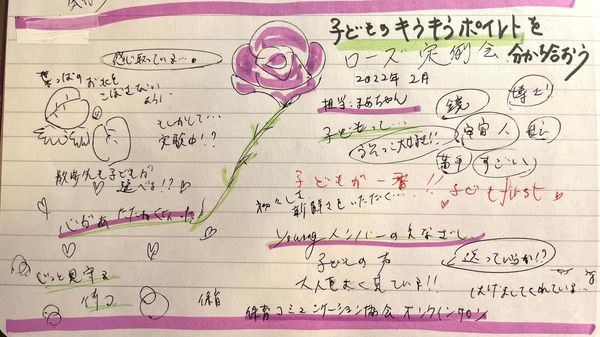 子どものキラキラポイントを
分かち合おう
ローズ定例会
2022年2月
担当:まめちゃん
子どもって…
鏡
博士
宇宙人
天才
すごーい
子どもが一番!!
子どもfirst
初々しさ
新鮮さをいただく…
youngメンバーのまなざし
子どもの方
大人をよく見ている!!
はげましてくれている…
保育コミュニケーション協会 オンラインサロン
感じ取っている…。
葉っぱのお水を
こぼさない
ように
もしかして…
実験中!?
散歩先も子どもが
選べる!?
心があたたかくなった
じっと見守る
待つ
保育